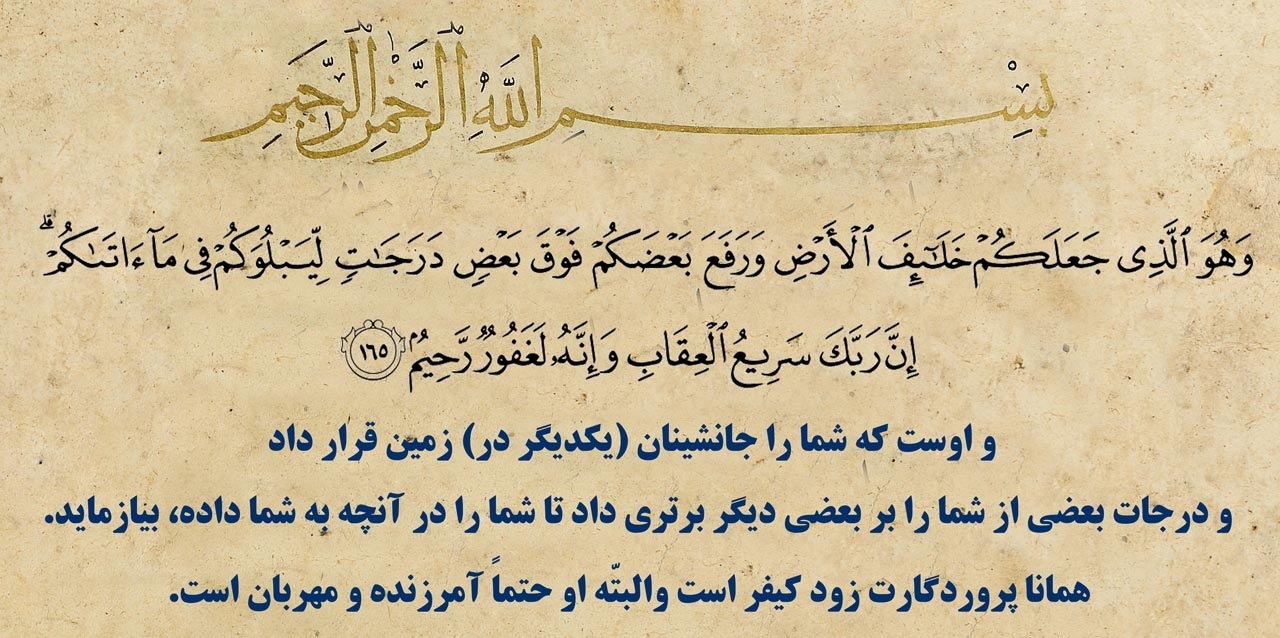 بِسْمِ اللَّهِ الرَّحْمَٰنِ الرَّحِيمِ
وَهُوَ ٱلَّذِى جَعَلَكُمْ خَلَـٰٓئِفَ ٱلْأَرْضِ وَرَفَعَ بَعْضَكُمْ فَوْقَ بَعْضٍ دَرَجَـٰتٍ لِّيَبْلُوَكُمْ فِى مَآ ءَاتَىٰكُمْ ۗ
إِنَّ رَبَّكَ سَرِيعُ ٱلْعِقَابِ وَإِنَّهُۥ لَغَفُورٌ رَّحِيمٌۢ ١٦٥
و اوست که شما را جانشینان (یکدیگر در) زمین قرار داد
و درجات بعضی از شما را بر بعضی دیگر برتری داد تا شما را در آنچه به شما داده، بیازماید.
همانا پروردگارت زود کیفر است والبتّه او حتماً آمرزنده و مهربان است.